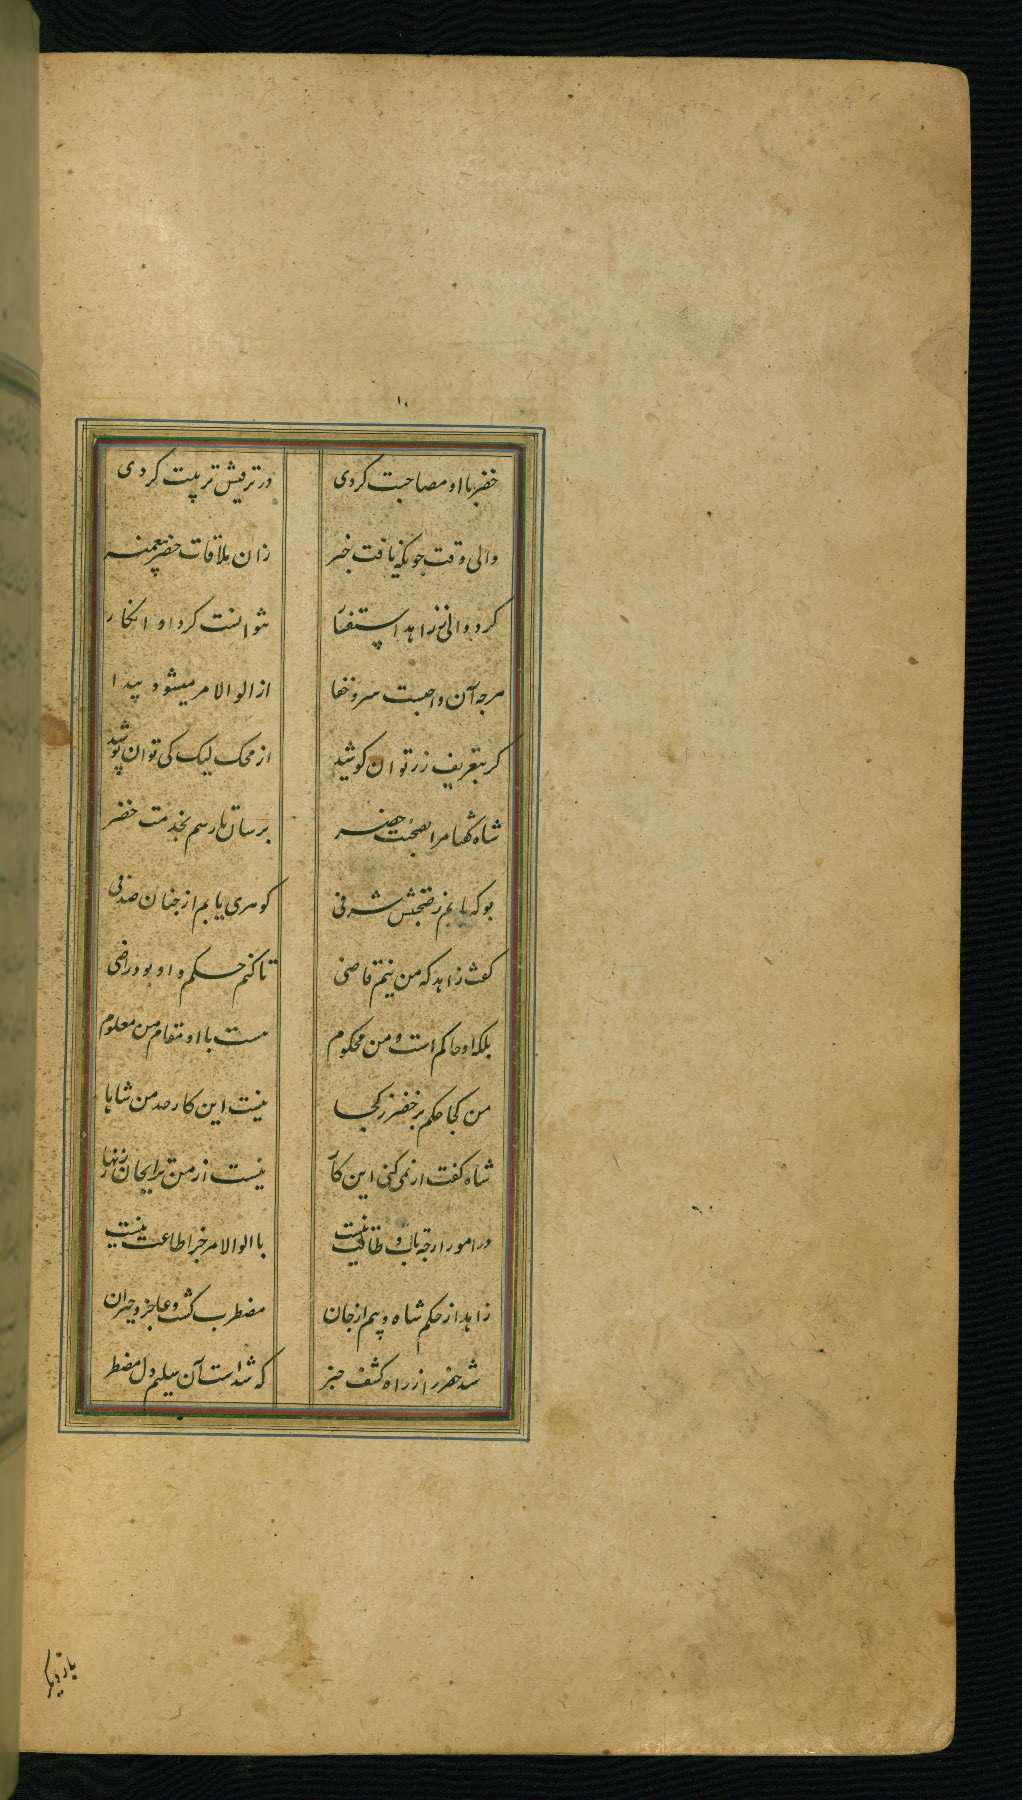 ۱۰
خضر با او مصاحبت کردی در ترقیش تربیت کردی
والی وقت چونکه یافت خبر زان ملاقات خضر پیغمبر
کرد والی ز زاهد استفسار نتوانست کرد او انکار
هرچه آن واجبست سر و خفا از الوالامر میشود پیدا
کر بتعریف زر توان کوشید از محک لیک کی توان پوشید
شاه کفتا مرا بصحبت خضر برسان تا رسم بخدمت خضر
بو که یابم ز صحبتش شرفی کوهری یابم از چنان صدفی
کفت زاهد که من نیم قاضی تا کنم حکم و او بود راضی
بلکه او حاکم است و من محکوم هست با او مقام من معلوم
من کجا حکم بر خضر ز کجا نیست این کار حد من شاها
شاه کفت ار نمی کنی این کار نیست از من ترا بجان زنهار
در امور ارچه تاب و طاقت نیست با الوالامر جز اطاعت نیست
زاهد از حکم شاه و بیم از جان مضطرب کشت و عاجز و حیران
شد خضر را ز راه کشف خبر که شداست آن سلیم دل مضطر
بار دیکر